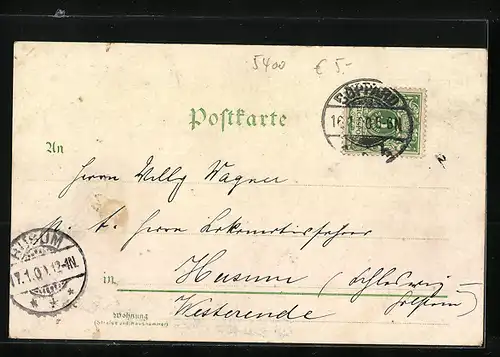 5400 € 5.-
BOPPARD
16.1.01.6-8N
Postkarte
An
Herrn Willy Wagner
Herrn Lokomotivführer
HUSUM
17.1.01.12-1N
in Husum (Schleswig-
Holstein)
Westerende
Wohnung
(Straße und Hausnummer)